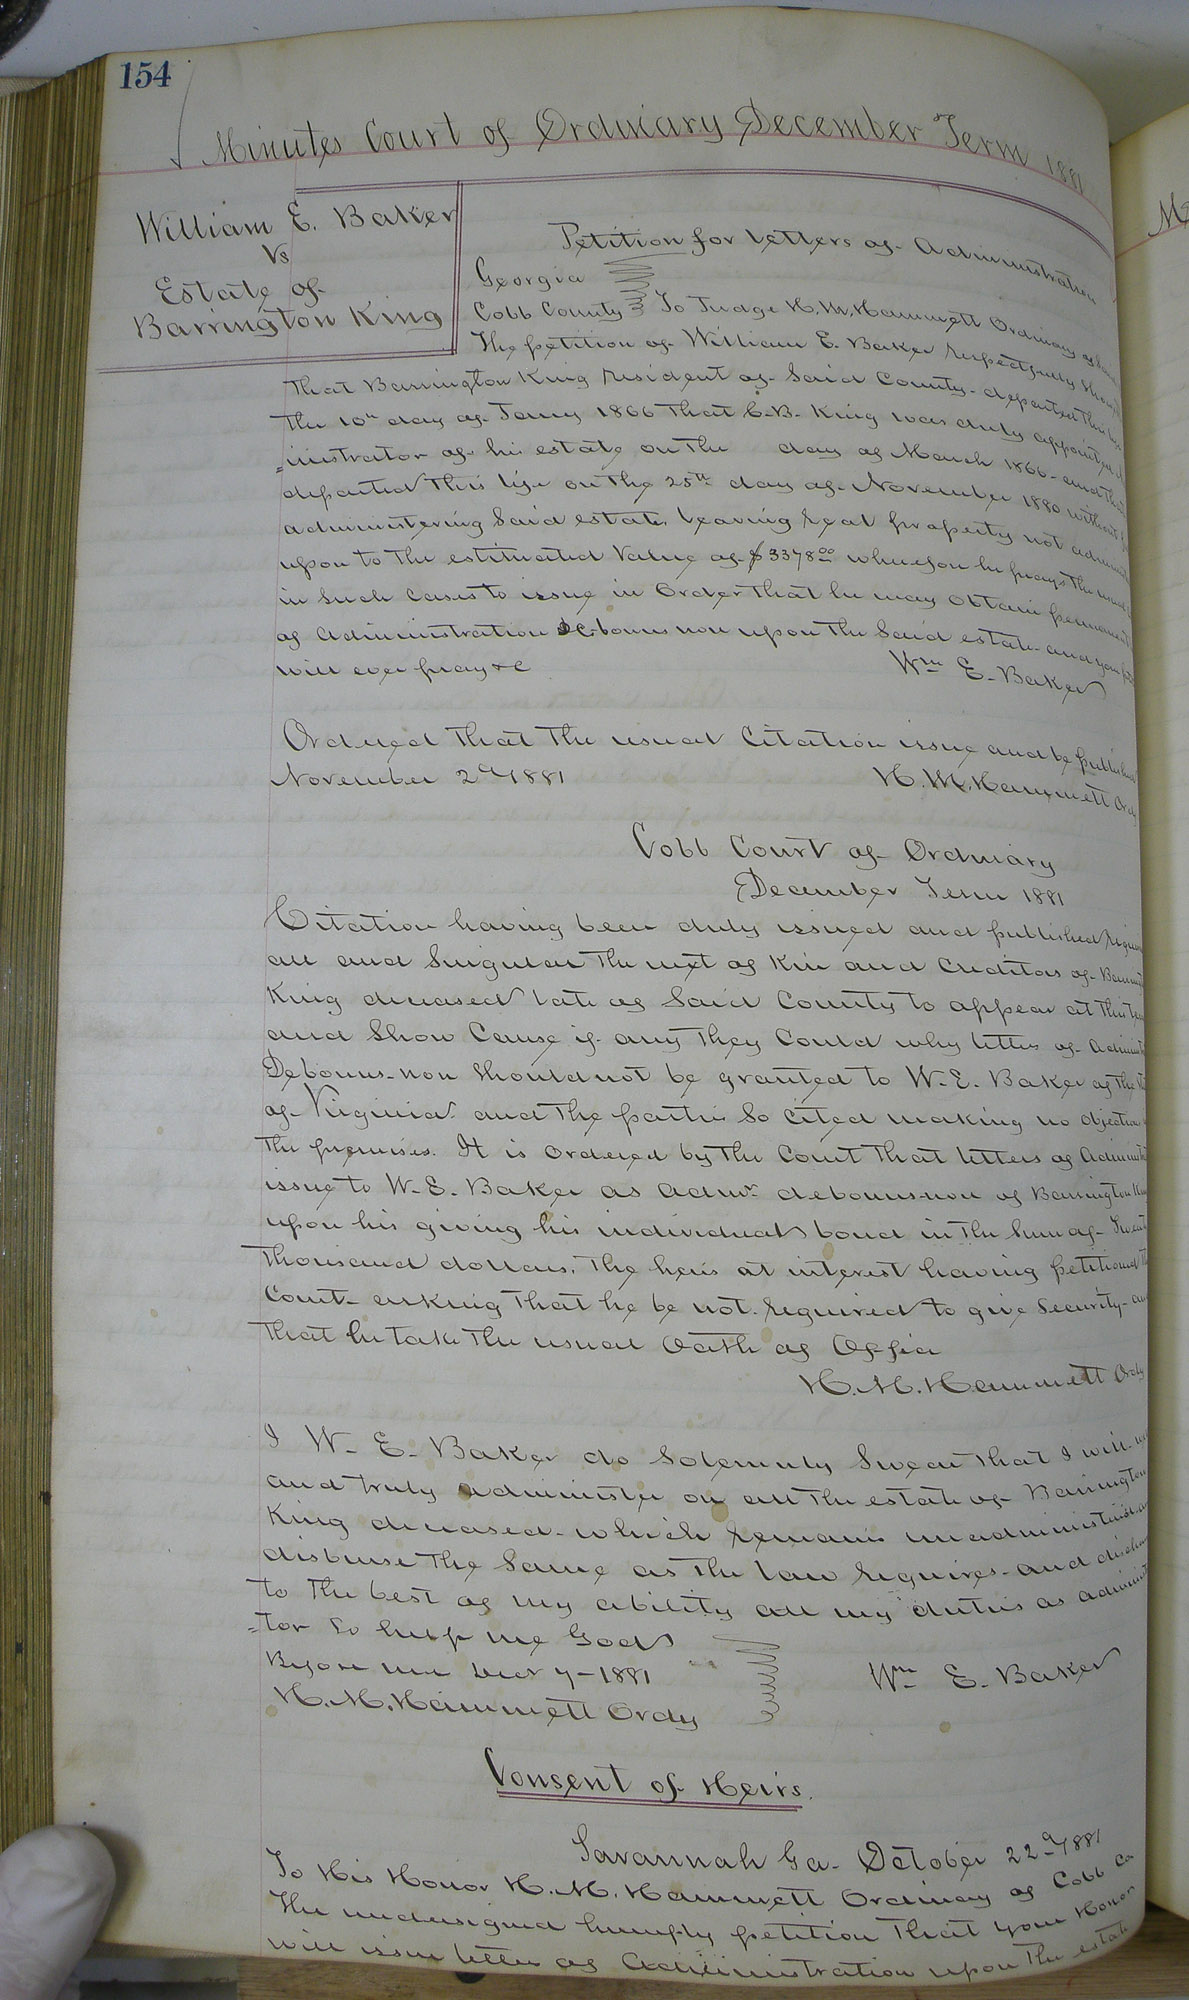 154
Minutes Court of Ordinary December Term 1881
William E. Baker
Vs
Estate of
Barrington King
Petition for Letters of Administration
Georgia
Cobb County To Judge H. M. Hammett Ordinary of Said
The petition of William E. Baker respectfully
That Barrington King resident of Said County departed this life
The 10th day of Jany 1866 That C. B. King was duly appointed
=inistrator of his estate on the day of March 1866 - and that
departed this life on the 25th day of November 1880 without
administering Said estate, leaving real property not
upon to the estimated value of $3378.00 whereupon he prays the usual
in such cases to issue in Order that he may obtain permanent
of Administration de bonus non upon the Said estate and your
will ever pray &c
Wm E. Baker
Ordered that the usual Citation issue and be published
November 2d 1881
H. M. Hammett Ordy
Cobb Court of Ordinary
December Term 1881
Citation having been duly issued and published
all and Singular the next of Kin and Creditors of
King deceased late of Said County to appear at this
and Show Cause if any they Could why letters of
Debonus-non Should not be granted to W. E. Baker of the
of Virginia and the parties So cited making no objection
the premises. It is Ordered by the Court that letters of
issue to W. E. Baker as Admr. debonus-non of Barrington
upon his giving his individual bond in the Sum of Twenty
Thousand dollars, the heirs at interest having petitioned
Court asking that he be not required to give Security
that he take the usual Oath of Office
H. M. Hammett Ordy
I W. E. Baker do Solemnly Swear that I will
and truly administer on all the estate of Barrington
King deceased - which remains unadministered
disburse the Same as the law requires - and
to the best of my ability all my duties as
=tor So help me God
Before me Decr 7 - 1881
H. M. Hammett Ordy
Wm E. Baker
Consent of Heirs.
Savannah Ga. October 22d 1881
To His Honor H. M. Hammett Ordinary of Cobb Co
The undersigned humbly petition that your Honor
will issue letters of Administration upon the estate